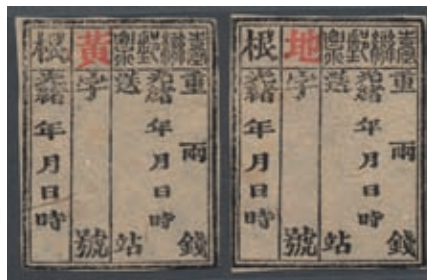 臺灣郵票
重 兩 錢
光緒 年月日時
送 站
黃字 號
根
光緒 年月日時
臺灣郵票
重 兩 錢
光緒 年月日時
送 站
地字 號
根
光緒 年月日時